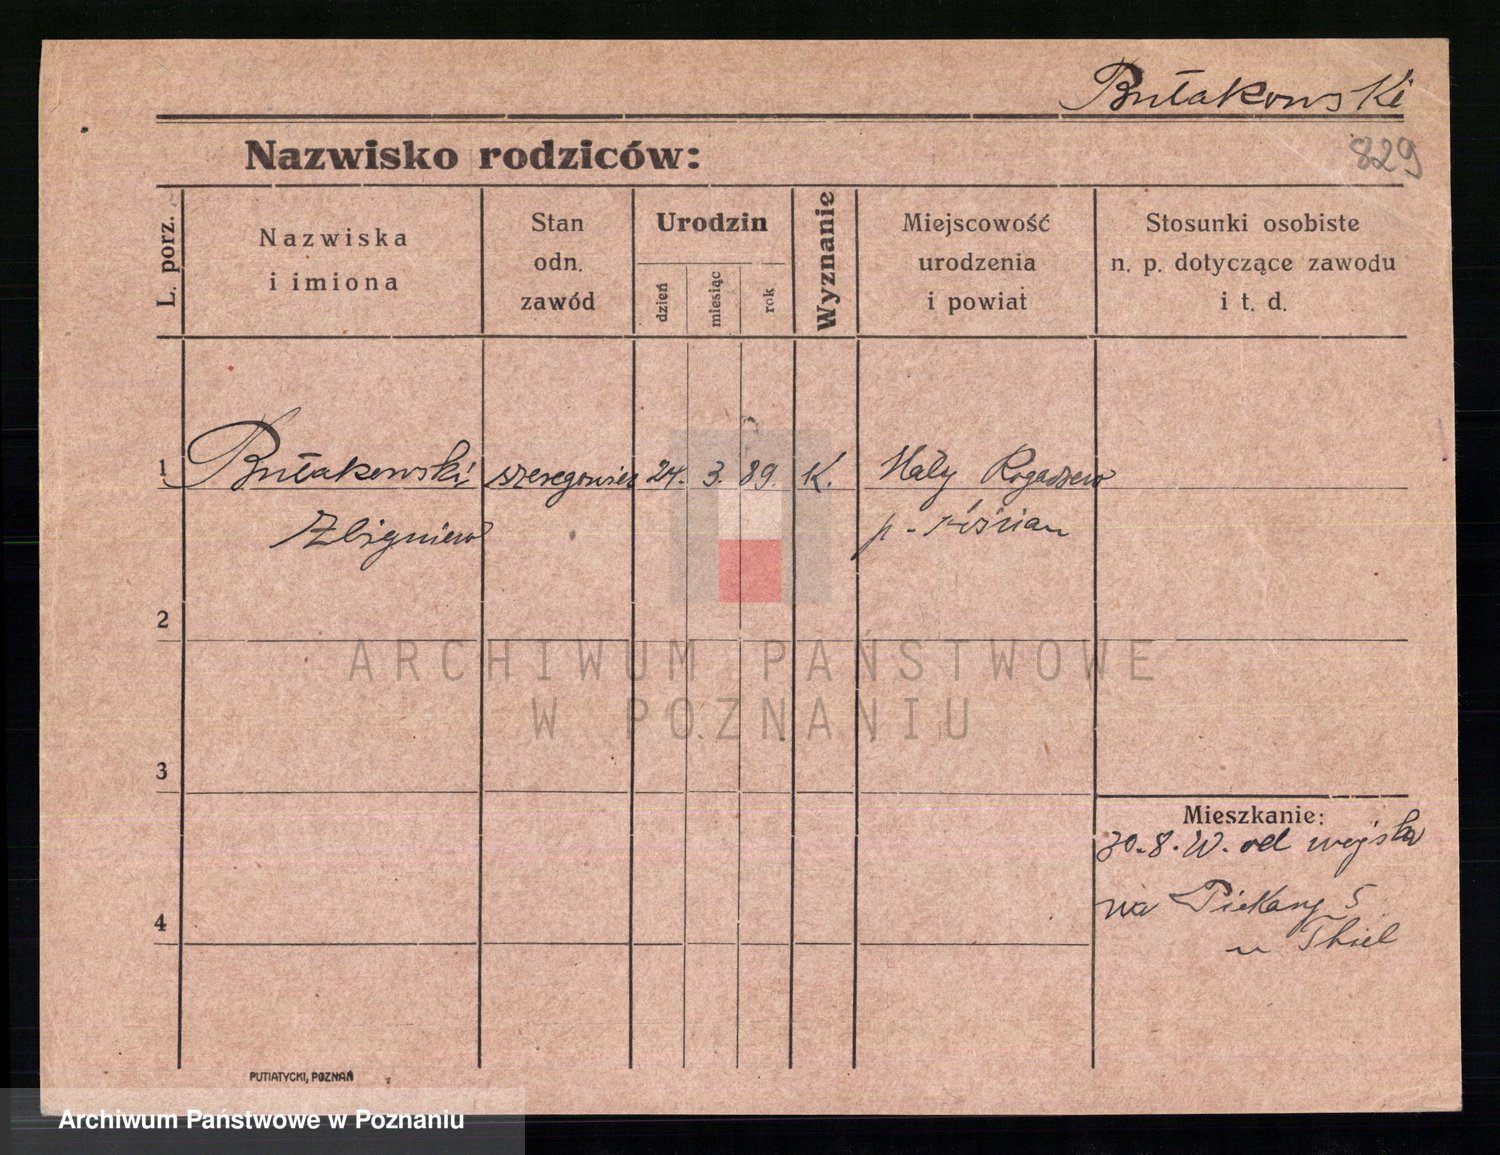 Bułakowski
829
Nazwisko rodziców:
L. porz.
Nazwiska
i imiona
Stan
odn.
zawód
Urodzin
dzień
miesiąc
rok
Wyznanie
Miejscowość
urodzenia
i powiat
Stosunki osobiste
n. p. dotyczące zawodu
i t. d.
1 Bułakowski szeregowiec 24. 3. 89. K. Mały Rogaczewo
Zbigniew p.
2
3
4
Mieszkanie:
30.8. W. od wojska
na Piekary 5
u Thiel
PUTIATYCKI, POZNAŃ
ARCHIWUM PAŃSTWOWE
W POZNANIU
Archiwum Państwowe w Poznaniu